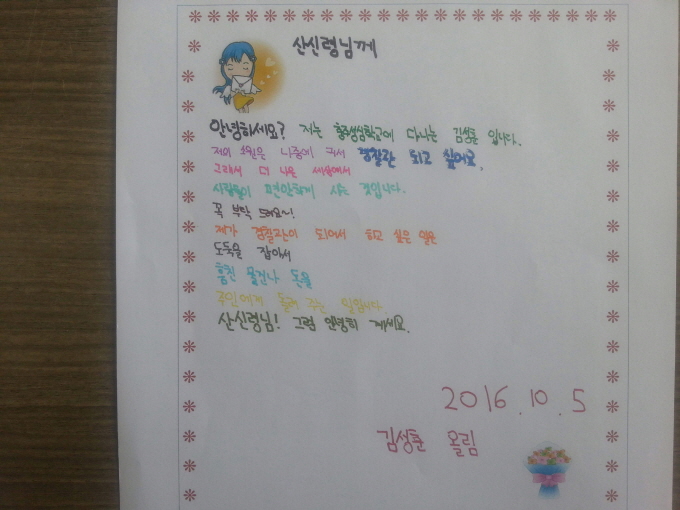 산신령님께
안녕하세요? 저는 충주성심학교에 다니는 김성훈 입니다.
저의 소원은 나중에 커서 경찰관 되고 싶어요,
그래서 더 나은 세상에서
사람들이 편안하게 사는 것입니다.
꼭 부탁 드려요~!
제가 경찰관이 되어서 하고 싶은 일은
도둑을 잡아서
훔친 물건나 돈을
주인에게 돌려 주는 일입니다
산신령님! 그럼 안녕히 계세요.
2016.10.5
김성훈 올림